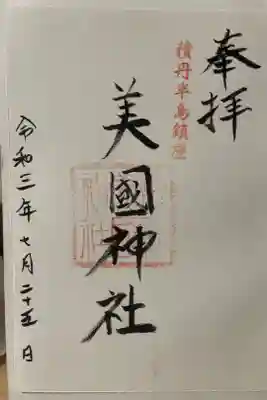 奉拝
積丹半島鎮座
美國神社
令和三年七月二十五日